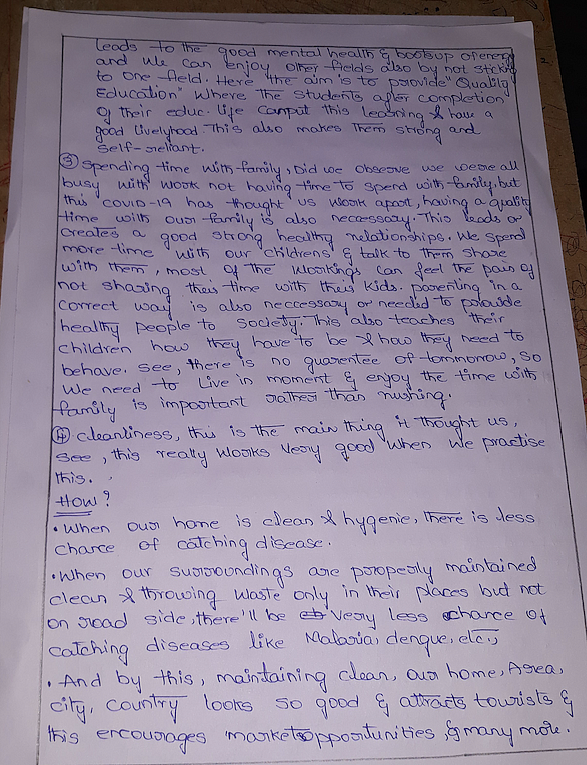 leads to the good mental health & bootsup of energy
and we can enjoy other fields also by not sticking
to one field. Here the aim is to provide "Quality
Education" where the students after completion
of their educ. life can put this learning & have a
good livelyhood This also makes them strong and
self-reliant.
③ spending time with family, Did we observe we were all
busy with work not having time to spend with family, but
this covid-19 has thought us work apart, having a quality
time with our family is also necessary. This leads or
creates a good strong healthy relationships. We spend
more time with our childrens & talk to them share
with them, most of the workings can feel the pain of
not sharing their time with their kids. parenting in a
correct way is also neccessary or needed to provide
healthy people to society. This also teaches their
children how they have to be & how they need to
behave. see, there is no guarentee of tommorow, so
We need to Live in moment & enjoy the time with
family is important rather than rushing.
④ cleanliness, this is the main thing it thought us,
see, this really works very good when we practise
this.
How?
• When our home is clean & hygenie, there is less
chance of catching disease.
• When our surroundings are properly maintained
clean & throwing waste only in their places but not
on road side, there'll be very less chance of
catching diseases like Malaria, dengue, etc.,
• And by this, maintaining clean, our home, Area,
city, country looks so good & attracts tourists &
this encourages market opportunities, & many more.